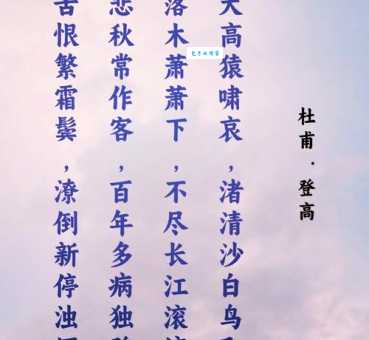 杜甫·登高
天高猿啸哀，渚清沙白鸟
落木萧萧下，不尽长江滚
悲秋常作客，百年多病独
苦恨繁霜鬓，潦倒新停浊